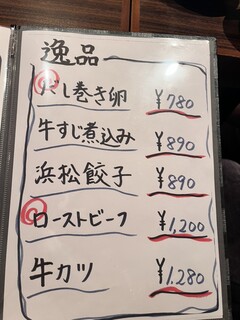 逸品
だし巻き卵 ¥780
牛すじ煮込み ¥890
浜松餃子 ¥890
ローストビーフ ¥1,200
牛カツ ¥1,280